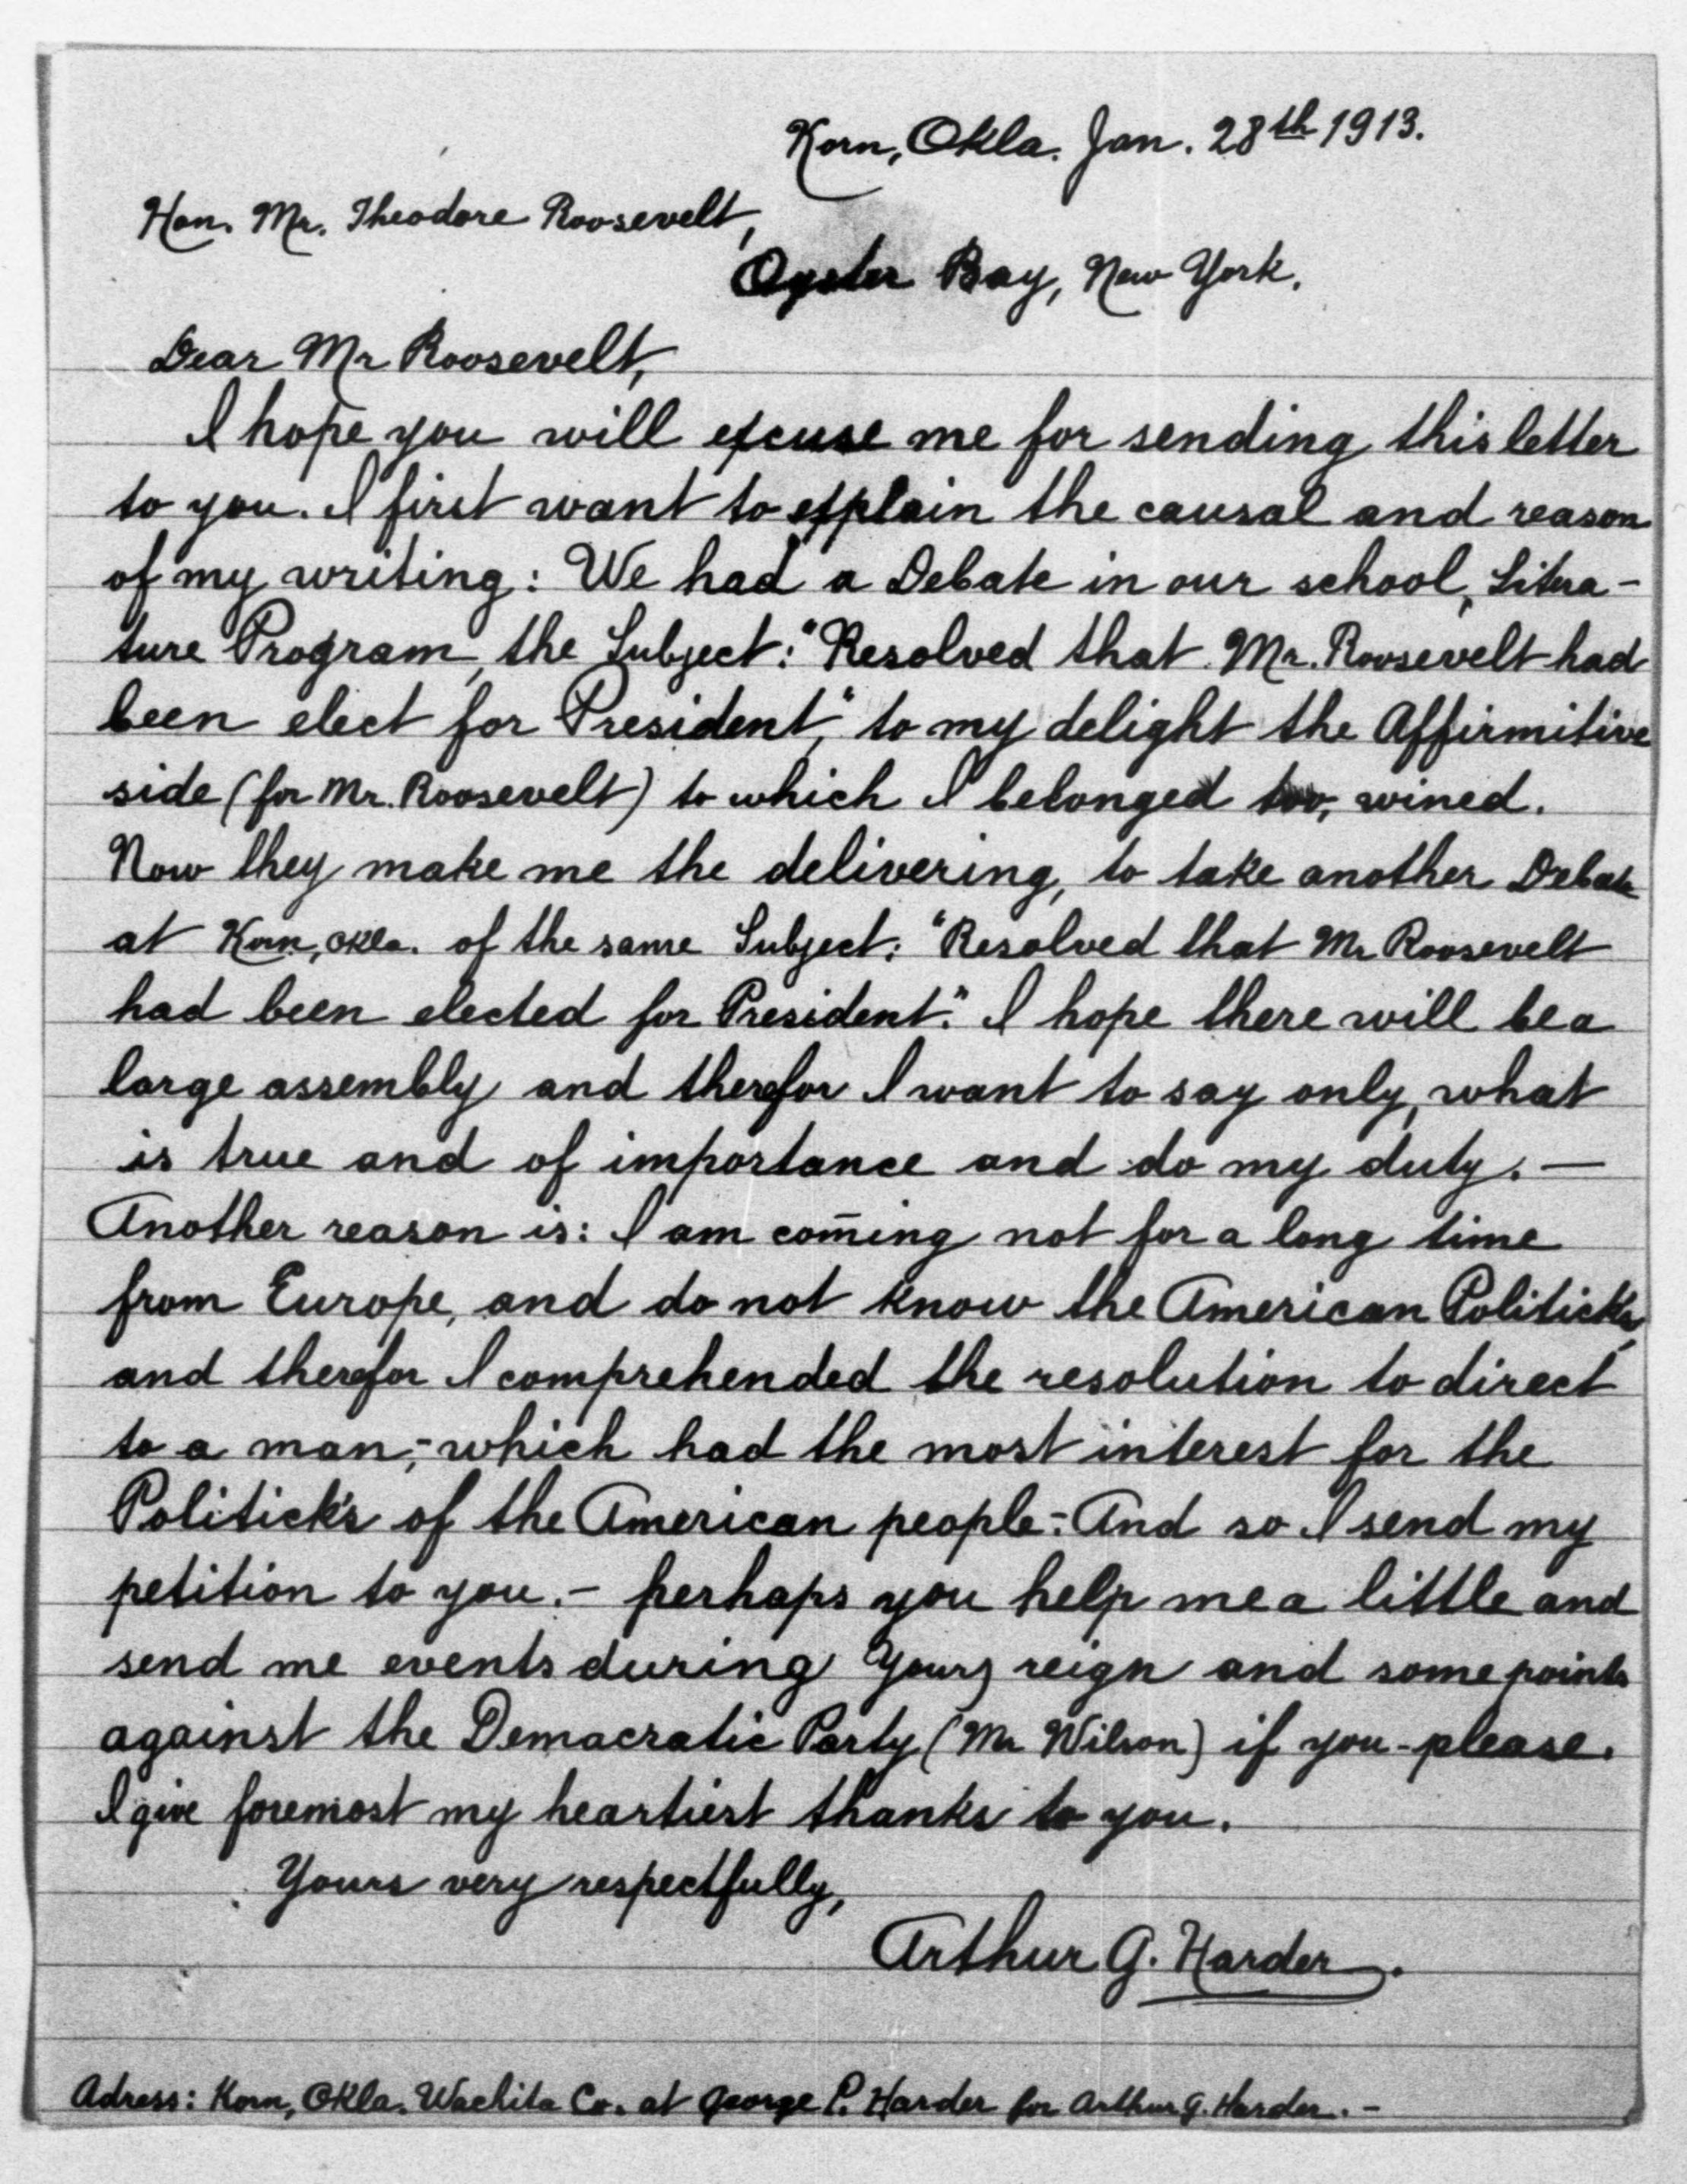 Korn, Okla. Jan. 28th 1913.
Hon. Mr. Theodore Roosevelt,
Oyster Bay, New York.
Dear Mr Roosevelt,
I hope you will excuse me for sending this letter
to you. I first want to explain the causal and reason
of my writing: We had a Debate in our school, Litera-
ture Program, the Subject: "Resolved that Mr. Roosevelt had
been elect for President," to my delight the Affirmitive
side (for Mr. Roosevelt) to which I belonged too, wined.
Now they make me the delivering, to take another Debate
at Korn, Okla. of the same Subject: "Resolved that Mr Roosevelt
had been elected for President." I hope there will be a
large assembly and therefor I want to say only, what
is true and of importance and do my duty. —
Another reason is: I am com̄ing not for a long time
from Europe, and do not know the American Politick's,
and therefor I comprehended the resolution to direct
to a man,- which had the most interest for the
Politick's of the American people:- And so I send my
petition to you. - perhaps you help me a little and
send me events during Yours reign and some points
against the Democratic Party (Mr Wilson) if you-please.
I give foremost my heartiest thanks to you.
Yours very respectfully,
Arthur G. Harder.
Adress: Korn, Okla. Wachita Co. at George P. Harder for Arthur G. Harder. -